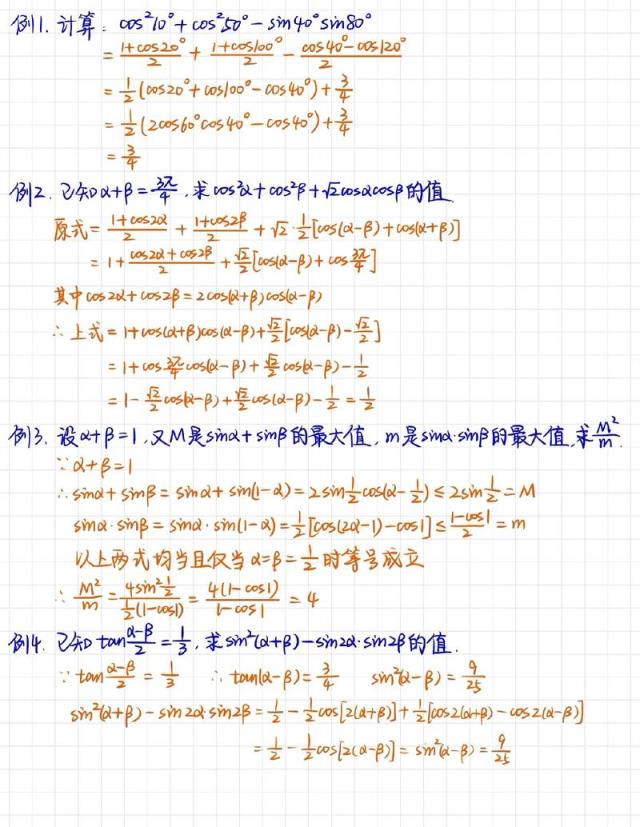 例1. 计算: cos²10°+cos²50°-sin40°sin80°
= (1+cos20°)/2 + (1+cos100°)/2 - (cos40°-cos120°)/2
= 1/2(cos20°+cos100°-cos40°)+3/4
= 1/2(2cos60°cos40°-cos40°)+3/4
= 3/4
例2. 已知α+β=3π/4, 求cos²α+cos²β+√2cosαcosβ的值.
原式= (1+cos2α)/2 + (1+cos2β)/2 + √2·1/2[cos(α-β)+cos(α+β)]
= 1+(cos2α+cos2β)/2 + √2/2[cos(α-β)+cos3π/4]
其中cos2α+cos2β=2cos(α+β)cos(α-β)
∴上式=1+cos(α+β)cos(α-β)+√2/2[cos(α-β)-√2/2]
= 1+cos3π/4cos(α-β)+√2/2cos(α-β)-1/2
= 1-√2/2cos(α-β)+√2/2cos(α-β)-1/2=1/2
例3. 设α+β=1, 又M是sinα+sinβ的最大值, m是sinα·sinβ的最大值, 求M²/m.
∵α+β=1
∴sinα+sinβ=sinα+sin(1-α)=2sin1/2cos(α-1/2)≤2sin1/2=M
sinα·sinβ=sinα·sin(1-α)=1/2[cos(2α-1)-cos1]≤(1-cos1)/2=m
以上两式均当且仅当α=β=1/2时等号成立
∴ M²/m = 4sin²1/2/(1/2(1-cos1)) = 4(1-cos1)/(1-cos1) = 4
例4. 已知tan(α-β)/2=1/3, 求sin²(α+β)-sin2α·sin2β的值.
∵tan(α-β)/2=1/3 ∴tan(α-β)=3/4 sin²(α-β)=9/25
sin²(α+β)-sin2α·sin2β=1/2-1/2cos[2(α+β)]+1/2[cos2(α+β)-cos2(α-β)]
=1/2-1/2cos[2(α-β)]=sin²(α-β)=9/25